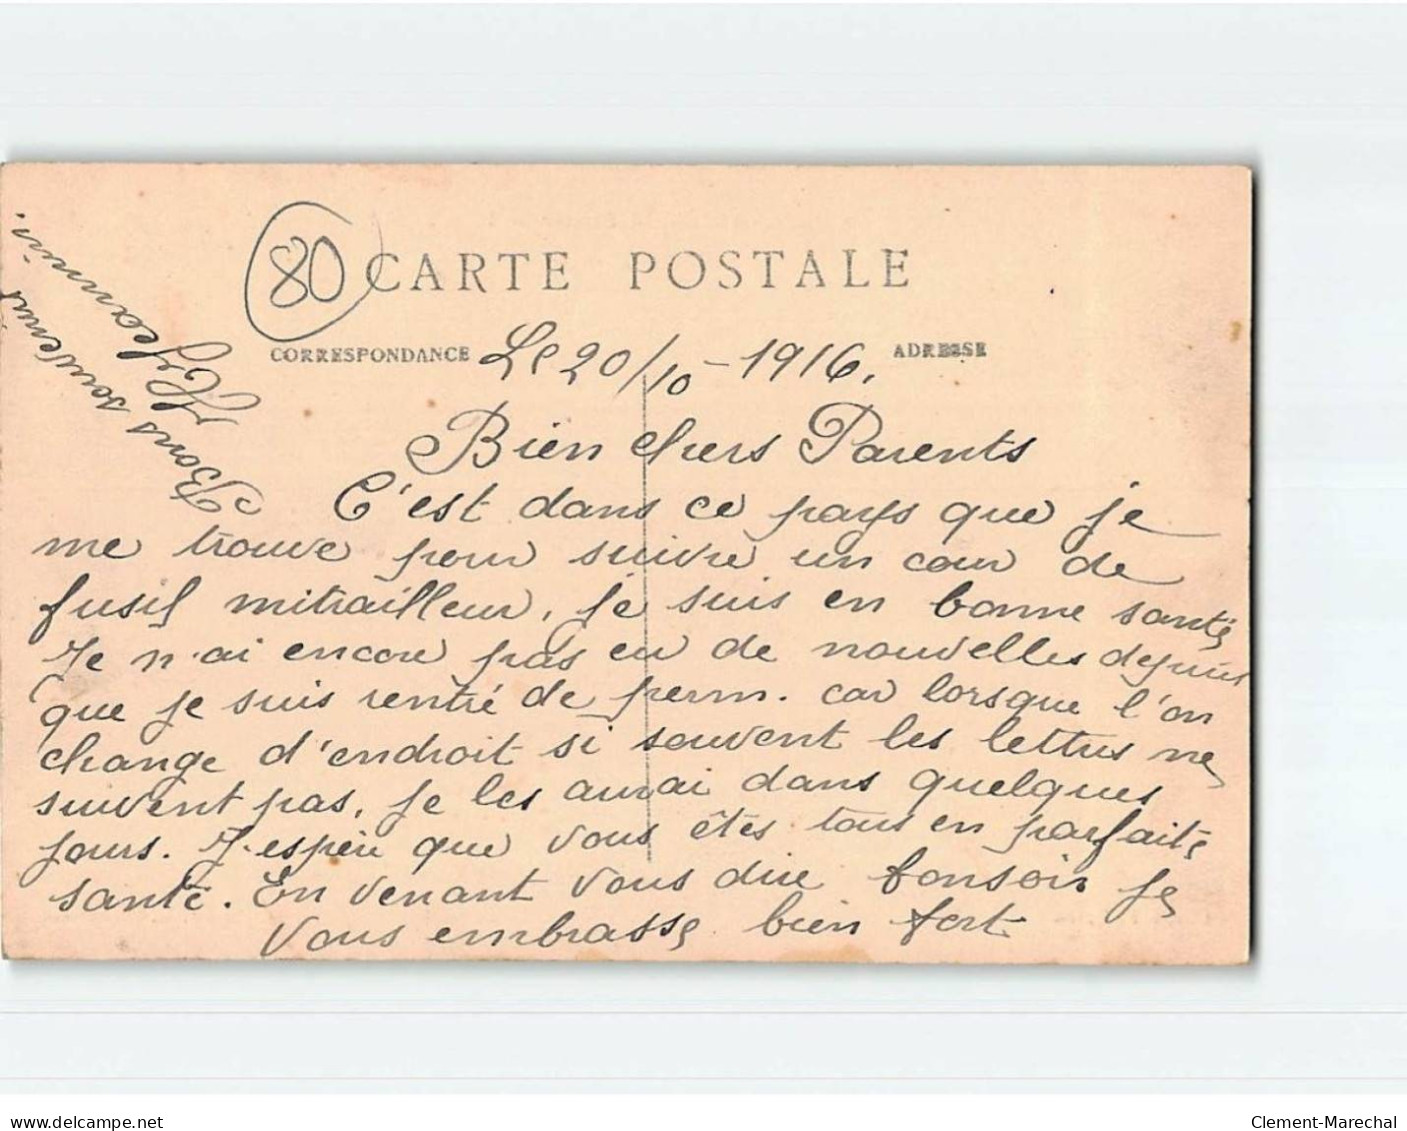 80
CARTE POSTALE
CORRESPONDANCE
ADRESSE
Le 20/10 - 1916.
Bien chers Parents
C'est dans ce pays que je
me trouve pour suivre un cour de
fusil mitrailleur, je suis en bonne santé
Je n'ai encore pas eu de nouvelles depuis
que je suis rentré de perm. car lorsque l'on
change d'endroit si souvent les lettres ne
suivent pas, je les aurai dans quelques
jours. J'espère que vous êtes tous en parfaite
santé. En venant vous dire bonsoir je
vous embrasse bien fort
Bons souvenirs
Jeannin.
delcampe.net
Clement-Marechal